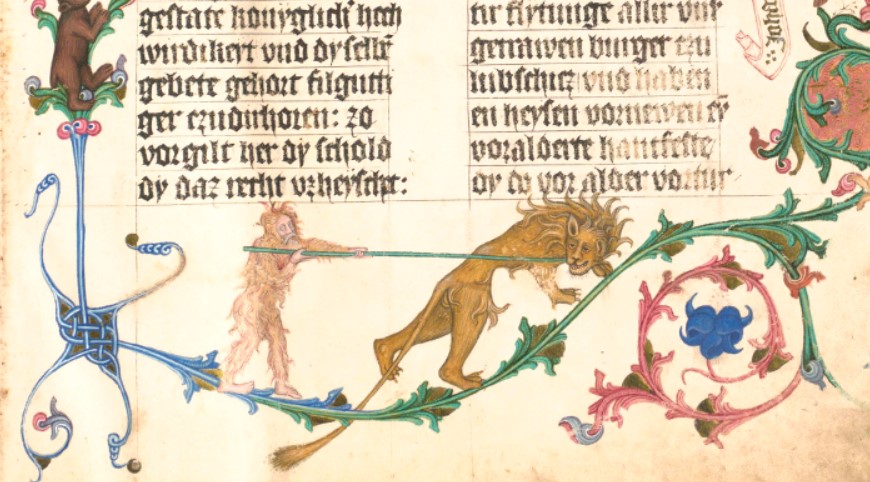 gestate konyglich hech
wirdikeyt vnd dy selbē
gebete gehort filgutti
ger czudirhoren: zo
vorgilt her dy schold
dy daz recht vzheyschet:
allir vns
getrawen burger czu
lubschicz vnd haben
en heysen vornewen
voraldirte hantfeste
dy do vor aldir